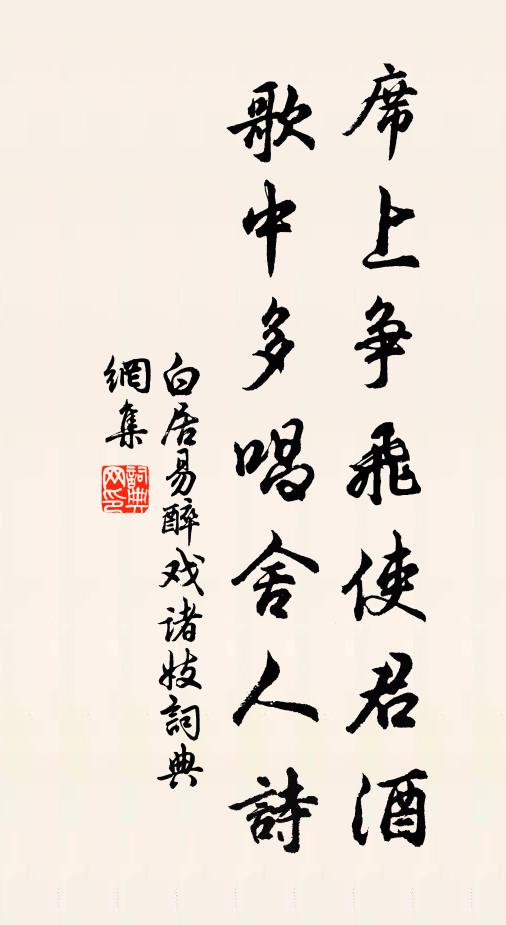 席上争飛使君酒
歌中多唱舍人詩
白居易醉戏诸妓詞典
網集
詞典网印